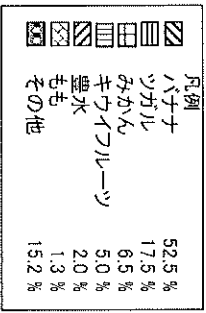 凡例
バナナ 52.5 %
ツガル 17.5 %
みかん 6.5 %
キウイフルーツ 5.0 %
豊水 2.0 %
もも 1.3 %
その他 15.2 %